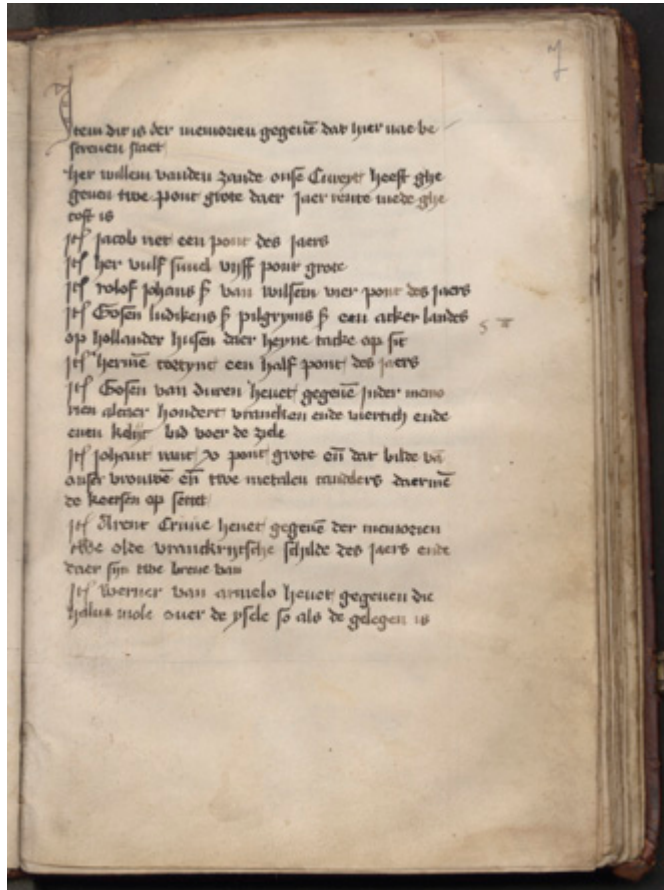 7
Item dit is der memorien gegeuē dat hier nae be
screuen staet
her willem vanden zande onse Cureyt heeft ghe
geuen twe pont grote daer jaer rente mede ghe
coft is
Itē jacob vet een pont des jaers
Itē her vulf vijff pont grote
Itē rolof johans ſ van wilsem vier pont des jaers
Itē Gosen ludikens ſ pilgryms ſ een acker landes
op hollander husen daer heyne tacke op sit
Itē hermē een half pont des jaers
Itē Gosen van duren heuet gegeuē inder memo
rien hondert vrancken ende viertich ende
enen kelijc bid voer de ziele
Itē johant pont grote eñ dat bilde vā
onser vrouwē eñ twe metalen daermē
de keersen op settet
Itē Arent Cruue heuet gegeuē der memorien
twe olde vranckrijcsche schilde des jaers ende
daer sijn twe breue van
Itē werner van armelo heuet gegeuen die
halue mole ouer de ysele so als de gelegen is